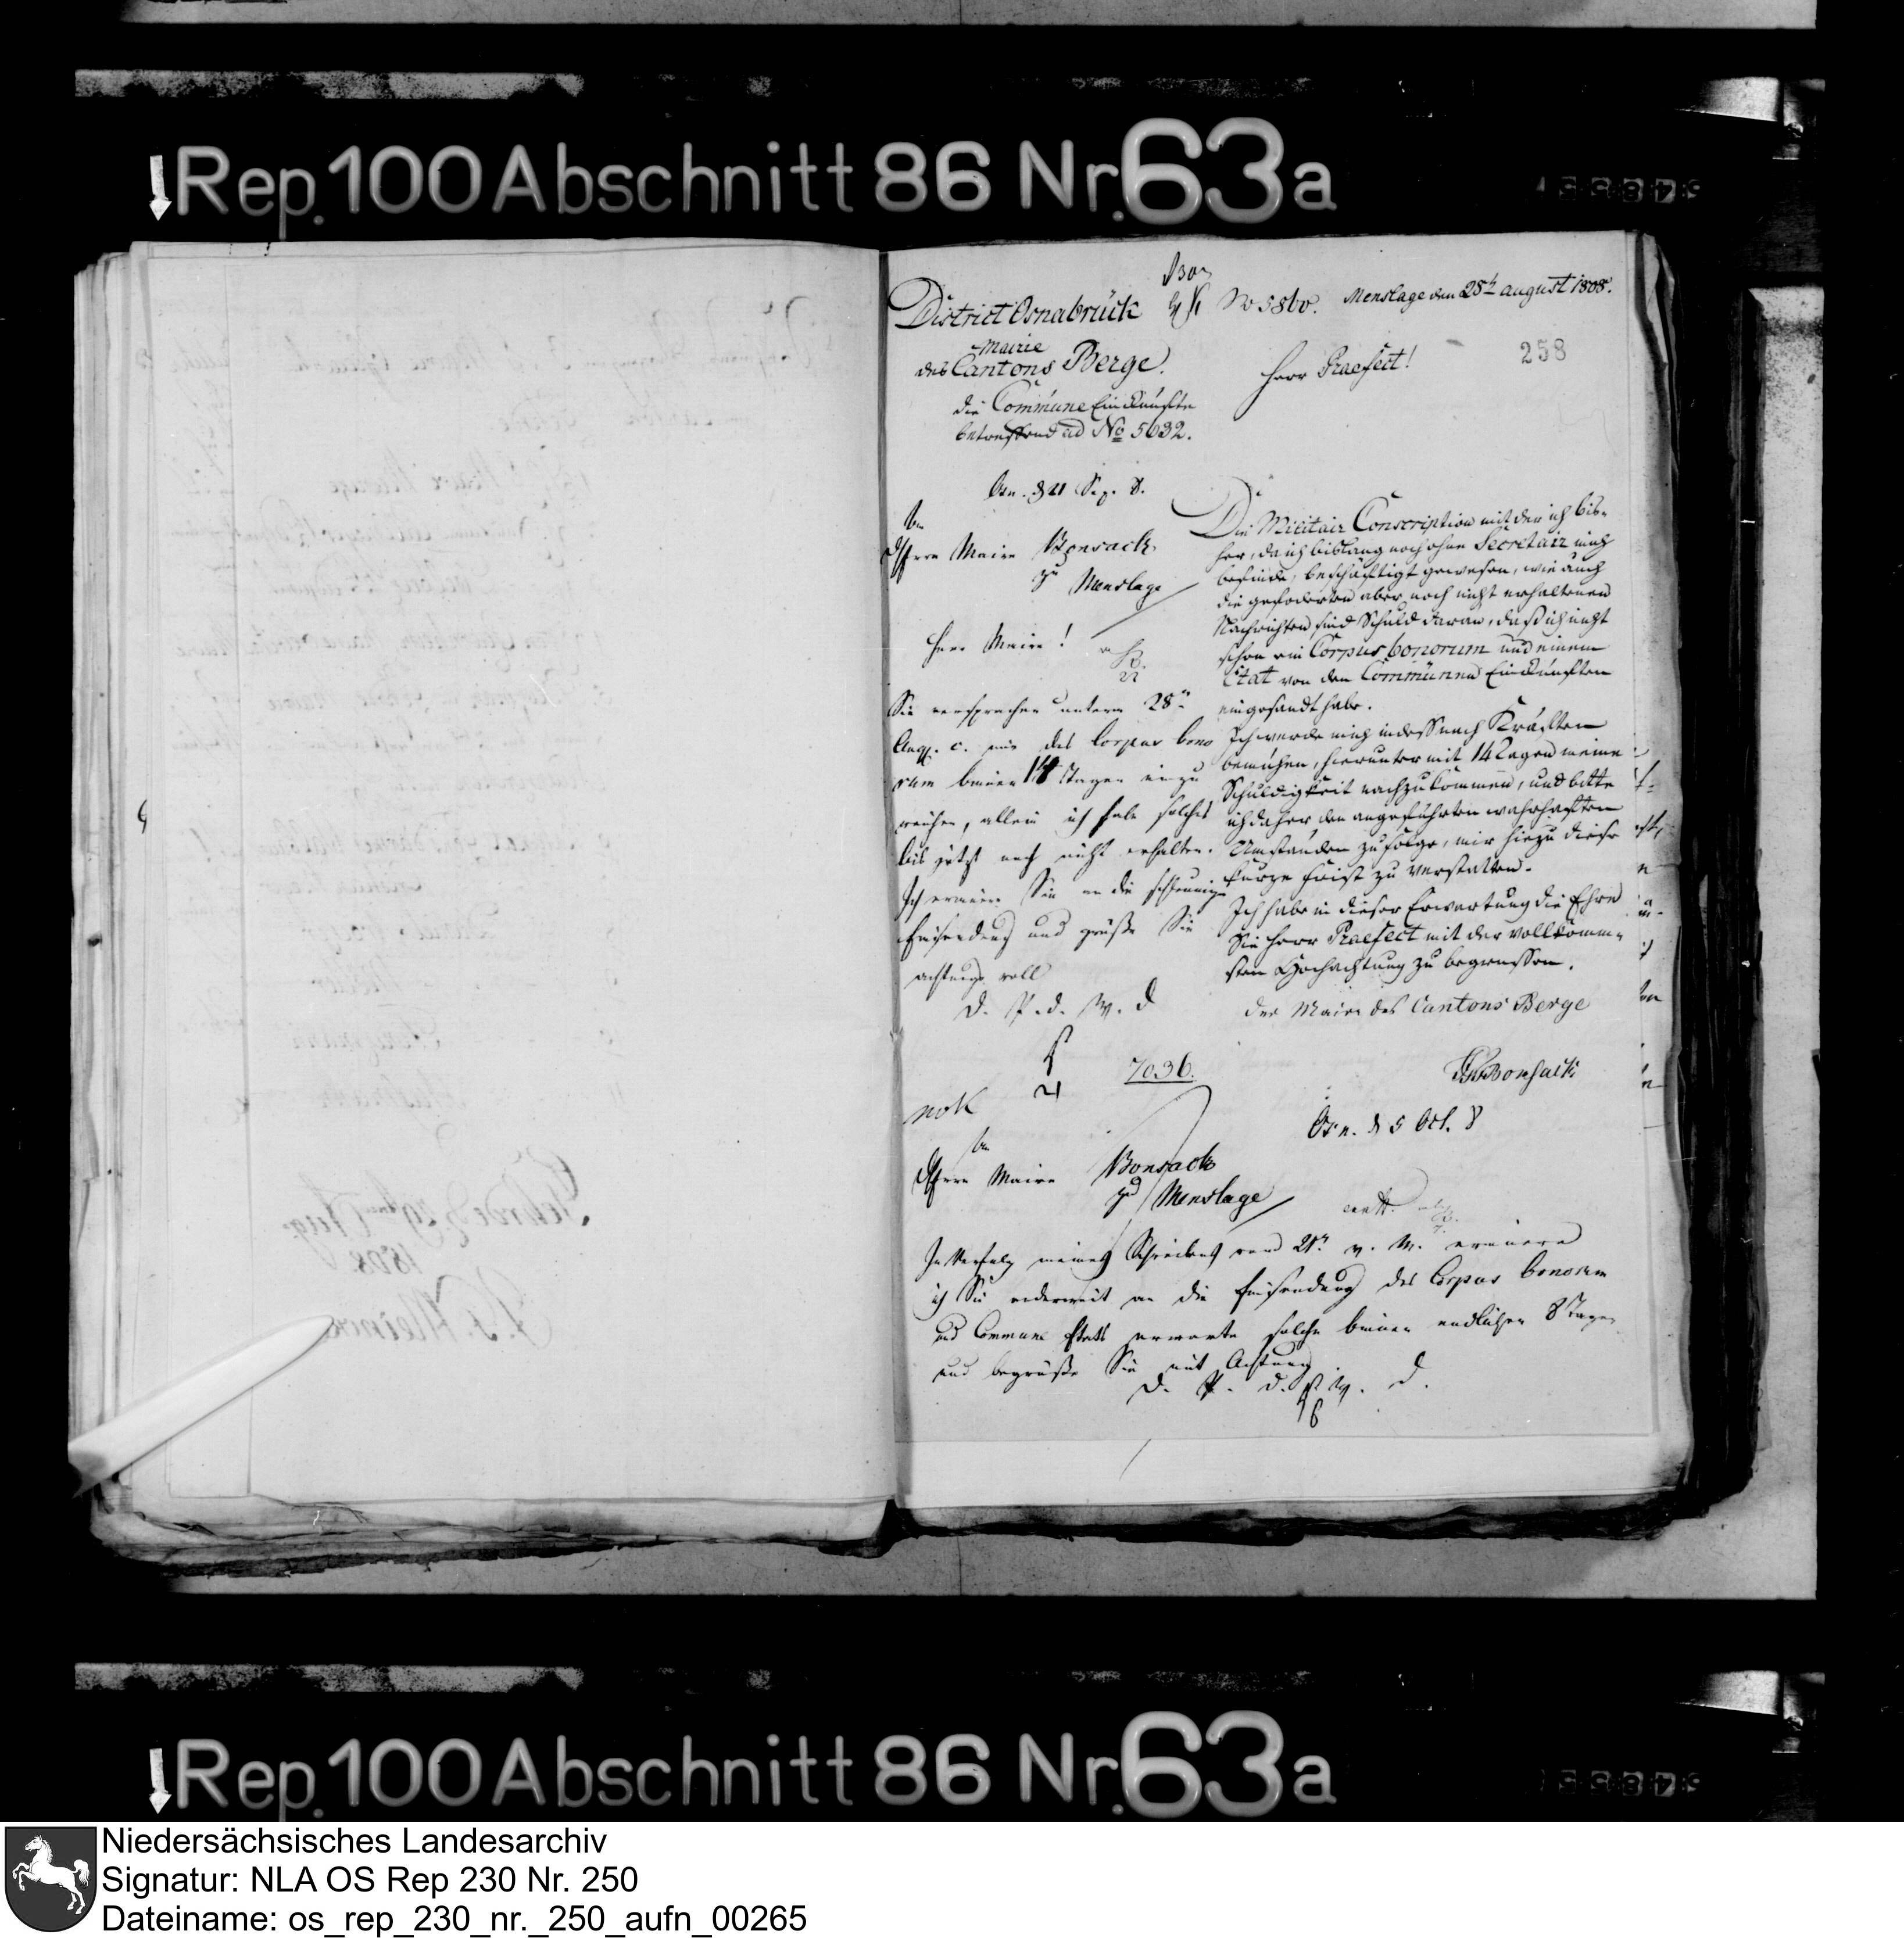 Rep. 100 Abschnitt 86 Nr. 63a
District Osnabrück
Mairie
des Cantons Berge.
die Commune Einkünfte
betreffend ad No 5632.
No 5860. Menslage den 28t august 1808.
258
Herr Praefect!
Die Militair Conscription mit der ich bis-
her, da ich bislang noch ohne Secretair mich
befinde, beschäftigt gewesen, wie auch
die gefoderten aber noch nicht erhaltenen
Nachrichten sind Schuld daran, daß ich nicht
schon ein Corpus bonorum und einem
Etat von den Communen Einkünften
eingesandt habe.
Ich werde mich indess nach Kräften
bemühen, hierunter mit 14 Tagen meine
Schuldigkeit nachzukommen, und bitte
ich daher den angeführten wahrhaften
Umständen zufolge, mir hiezu diese
kurze Frist zu verstatten.
Ich habe in dieser Erwartung die Ehre
Sie Herr Praefect mit der vollkomm-
sten Hochachtung zu begrüssen.
Der Maire des Cantons Berge
Bonsack
Osn. d 21 Sep. 8.
An
Herrn Maire Bonsack
zu Menslage
Herr Maire!
Sie versprachen unterm 28n
Aug. c. mir das Corpus bono
rum binnen 14 Tagen einzu
reichen, allein ich habe solches
bis jetzt noch nicht erhalten.
Ich erinnere Sie an die schleunige
Einsendung und grüße Sie
achtungsvoll
D. P. d. W. D
7036.
Osn. d 5 Oct. 8
An
Herrn Maire Bonsack
zu Menslage
In Verfolg meines Schreibens vom 21n v. M. erinnere
ich Sie anderweit an die Einsendung des Corpus bonorum
und Commune Etats erwarte solche binnen endlichen 8 Tagen
und begrüße Sie mit Achtung
D. P. d. W. D.
Rep. 100 Abschnitt 86 Nr. 63a
Niedersächsisches Landesarchiv
Signatur: NLA OS Rep 230 Nr. 250
Dateiname: os_rep_230_nr._250_aufn_00265